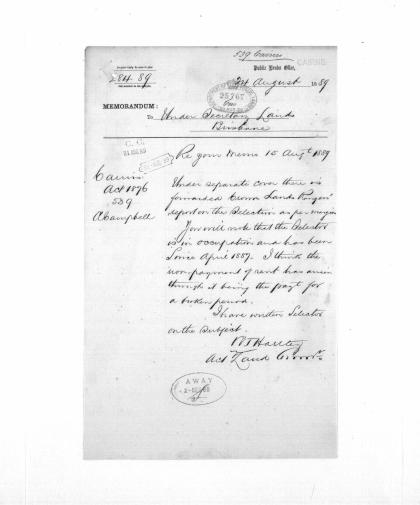 539 Cairns
Public Lands Office, CAIRNS
284.89
24 August 1889
25767
MEMORANDUM:
To Under Secretary Lands
Brisbane
C. C.
Re your Memo 15 Augt 1889
Cairns
Act 1876
539
A Campbell
Under separate cover there is
forwarded Crown Lands Rangers
report on the Selection as per margin
You will note that the Selector
is in occupation and has been
since April 1887. I think the
non payment of rent has arisen
through it being the paymt for
a broken period.
I have written Selector
on the subject.
Act Land Commr
AWAY